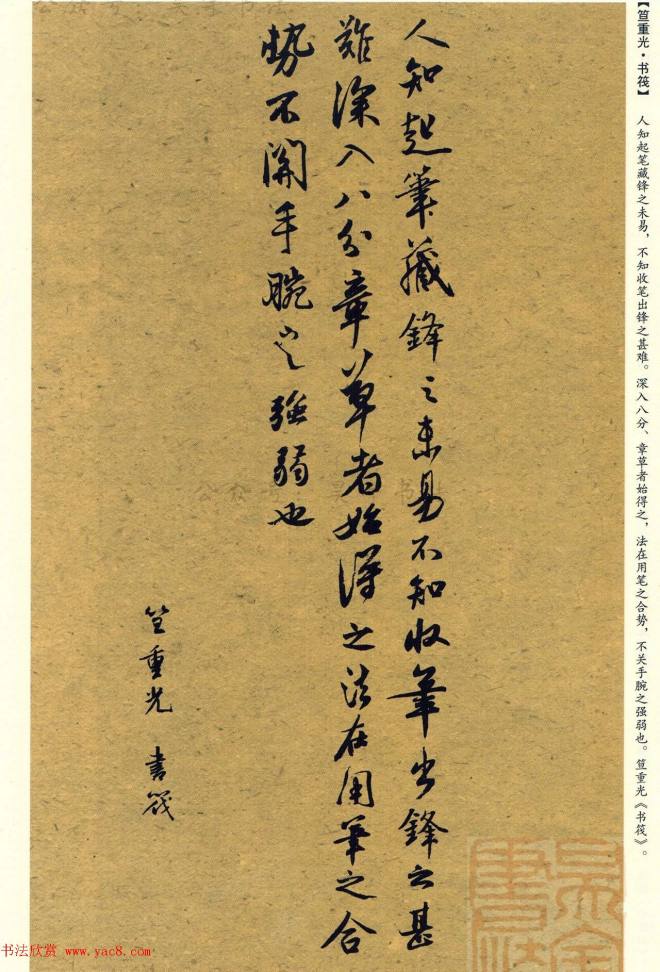 【笪重光·书筏】
人知起笔藏锋之未易，不知收笔出锋之甚难。深入八分、章草者始得之，法在用笔之合势，不关手腕之强弱也。笪重光《书筏》。
人知起筆藏鋒之未易不知收筆出鋒之甚
難深入八分章草者始得之法在用筆之合
勢不關手腕之強弱也
笪重光 書筏
书法欣赏 www.yac8.com